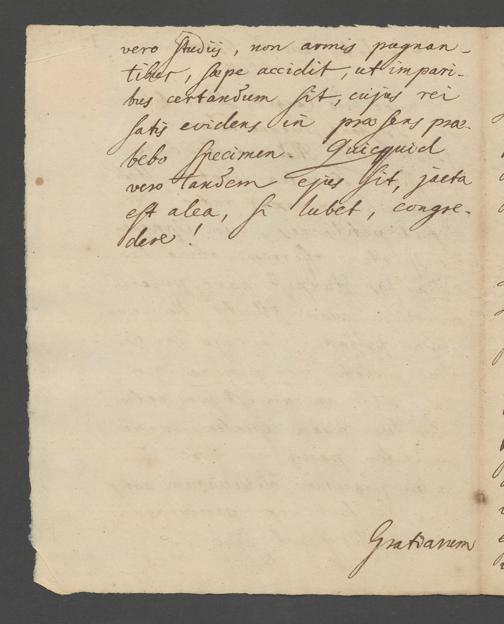 vero studiis, non armis pugnan-
tibus, sæpe accidit, ut impari-
bus certandum sit, cujus rei
satis evidens in præsens præ-
bebo specimen. Quicquid
vero tandem ejus sit, jacta
est alea, si lubet, congre-
dere!
Gratiarum